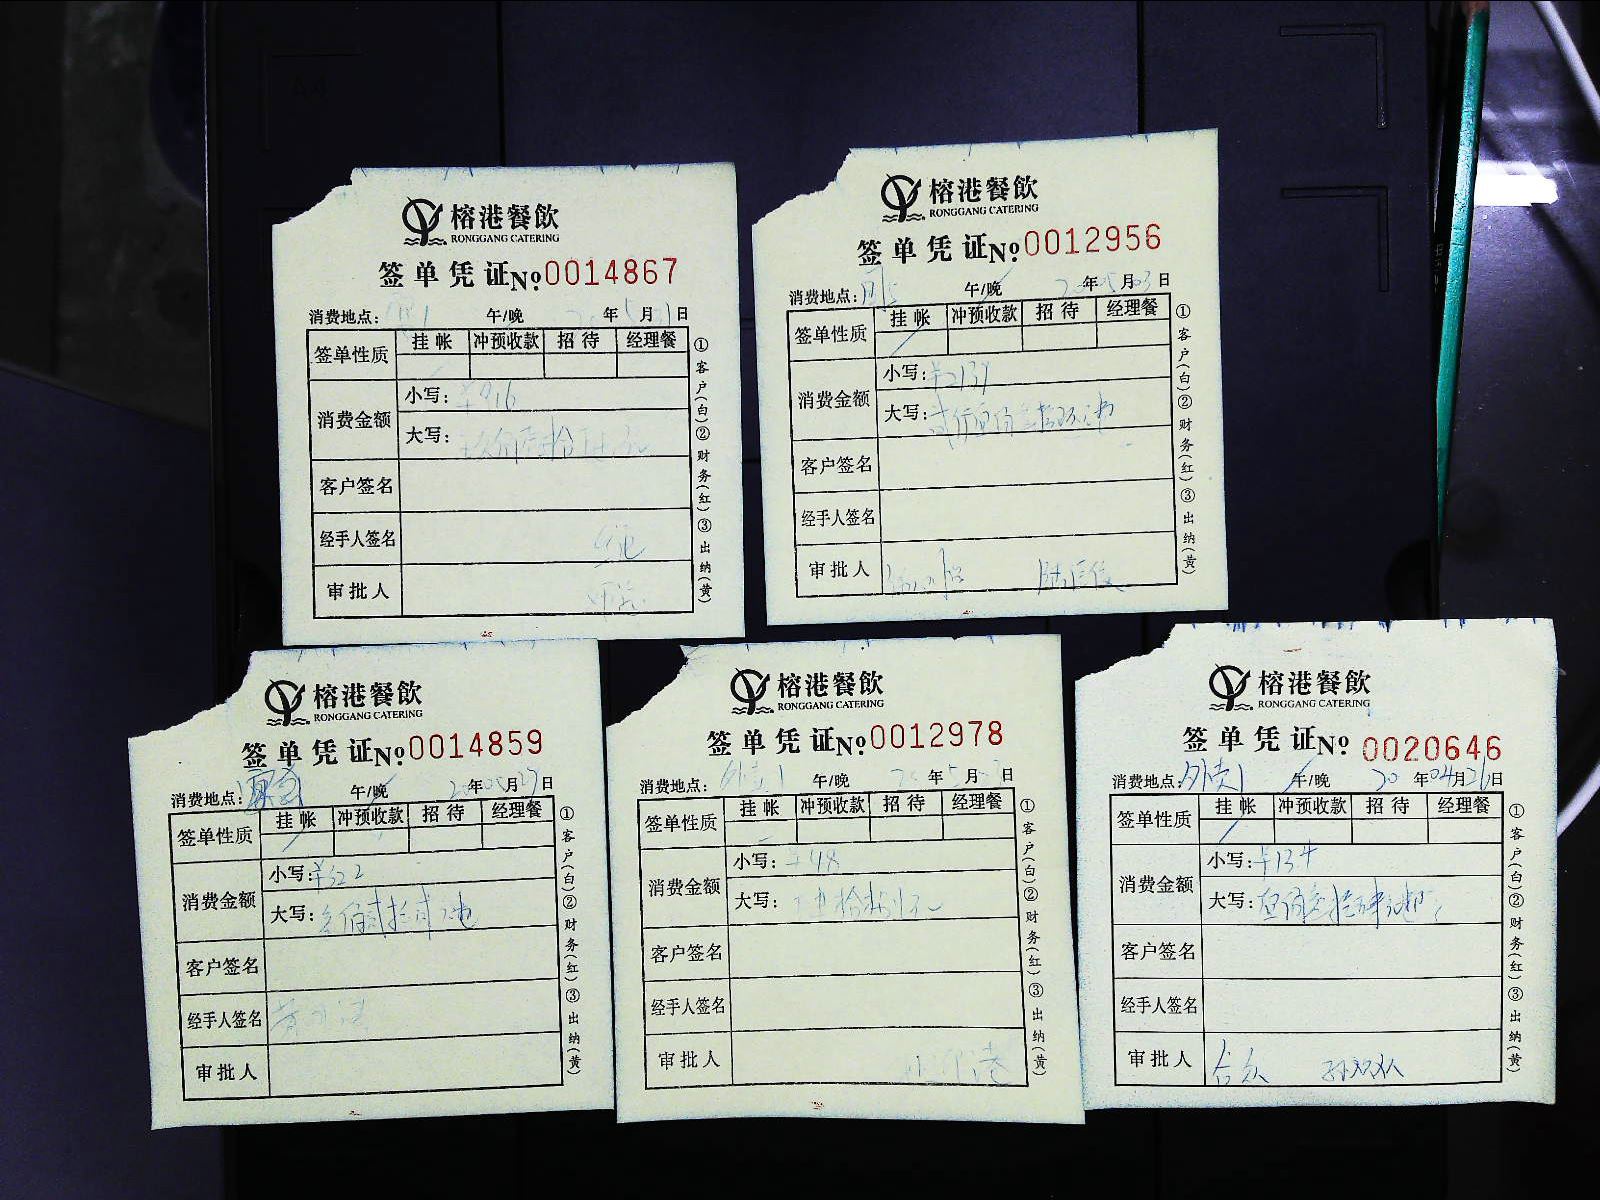 榕港餐飲
RONGGANG CATERING
签单凭证 No 0014867
消费地点: 午/晚 年 5 月 31 日
签单性质 挂帐 冲预收款 招待 经理餐
消费金额
小写: ¥916
大写:
客户签名
经手人签名
审批人
①客户(白)②财务(红)③出纳(黄)
榕港餐飲
RONGGANG CATERING
签单凭证 No 0012956
消费地点: 午/晚 20 年 05 月 03 日
签单性质 挂帐 冲预收款 招待 经理餐
消费金额
小写: ¥2139
大写:
客户签名
经手人签名
审批人
①客户(白)②财务(红)③出纳(黄)
榕港餐飲
RONGGANG CATERING
签单凭证 No 0014859
消费地点: 午/晚 20 年 05 月 27 日
签单性质 挂帐 冲预收款 招待 经理餐
消费金额
小写: ¥322
大写: 叁佰贰拾贰元
客户签名
经手人签名
审批人
①客户(白)②财务(红)③出纳(黄)
榕港餐飲
RONGGANG CATERING
签单凭证 No 0012978
消费地点: 外卖1 午/晚 20 年 5 月 日
签单性质 挂帐 冲预收款 招待 经理餐
消费金额
小写: ¥48
大写: 拾捌元
客户签名
经手人签名
审批人
①客户(白)②财务(红)③出纳(黄)
榕港餐飲
RONGGANG CATERING
签单凭证 No 0020646
消费地点: 外卖1 午/晚 20 年 04 月 26 日
签单性质 挂帐 冲预收款 招待 经理餐
消费金额
小写: ¥134
大写: 壹佰叁拾肆元
客户签名
经手人签名
审批人 合众
①客户(白)②财务(红)③出纳(黄)